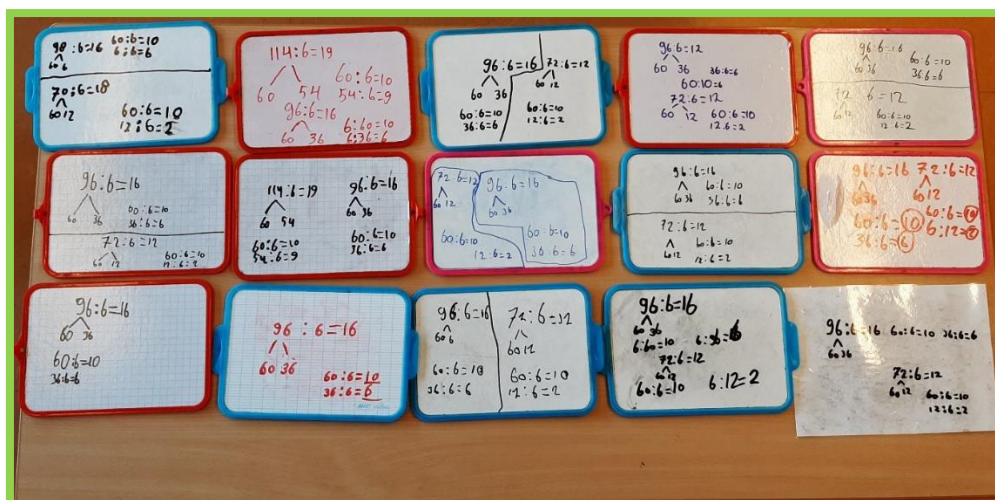 98:6=16 60:6=10
60 6 6:6=6
70:6=18
60 12 60:6=10
12:6=2
114:6=19
60 54 60:6=10
54:6=9
96:6=16
60 36 6:60=10
6:36=6
96:6=16
60 36
60:6=10
36:6=6
72:6=12
60 12
60:6=10
12:6=2
96:6=12
60 36 36:6=6
60:10=6
72:6=12
60 12 60:6=10
12:6=2
96:6=16
60 36 60:6=10
36:6=6
72 6=12
60 12 60:6=10
12:6=2
96:6=16
60 36 60:6=10
36:6=6
72:6=12
60 12 60:6=10
12:6=2
114:6=19
60 54
60:6=10
54:6=9
96:6=16
60 36
60:6=10
36:6=6
72:6=12
60 12
60:6=10
12:6=2
96:6=16
60 36
60:6=10
36:6=6
96:6=16
60 36 60:6=10
36:6=6
72:6=12
60 12 60:6=10
12:6=2
96:6=16 72:6=12
60 36 60 12
60:6=10 60:6=10
36:6=6 6:12=2
96:6=16
60 36
60:6=10
36:6=6
96:6=16
60 36
60:6=10
36:6=6
96:6=16
60 6
60:6=10
36:6=6
72:6=12
60 12
60:6=10
12:6=2
96:6=16
60 36
6:60=10 6:36=6
72:6=12
60 12
60:6=10 6:12=2
96:6=16 60:6=10 36:6=6
60 36
72:6=12
60 12 60:6=10
12:6=2